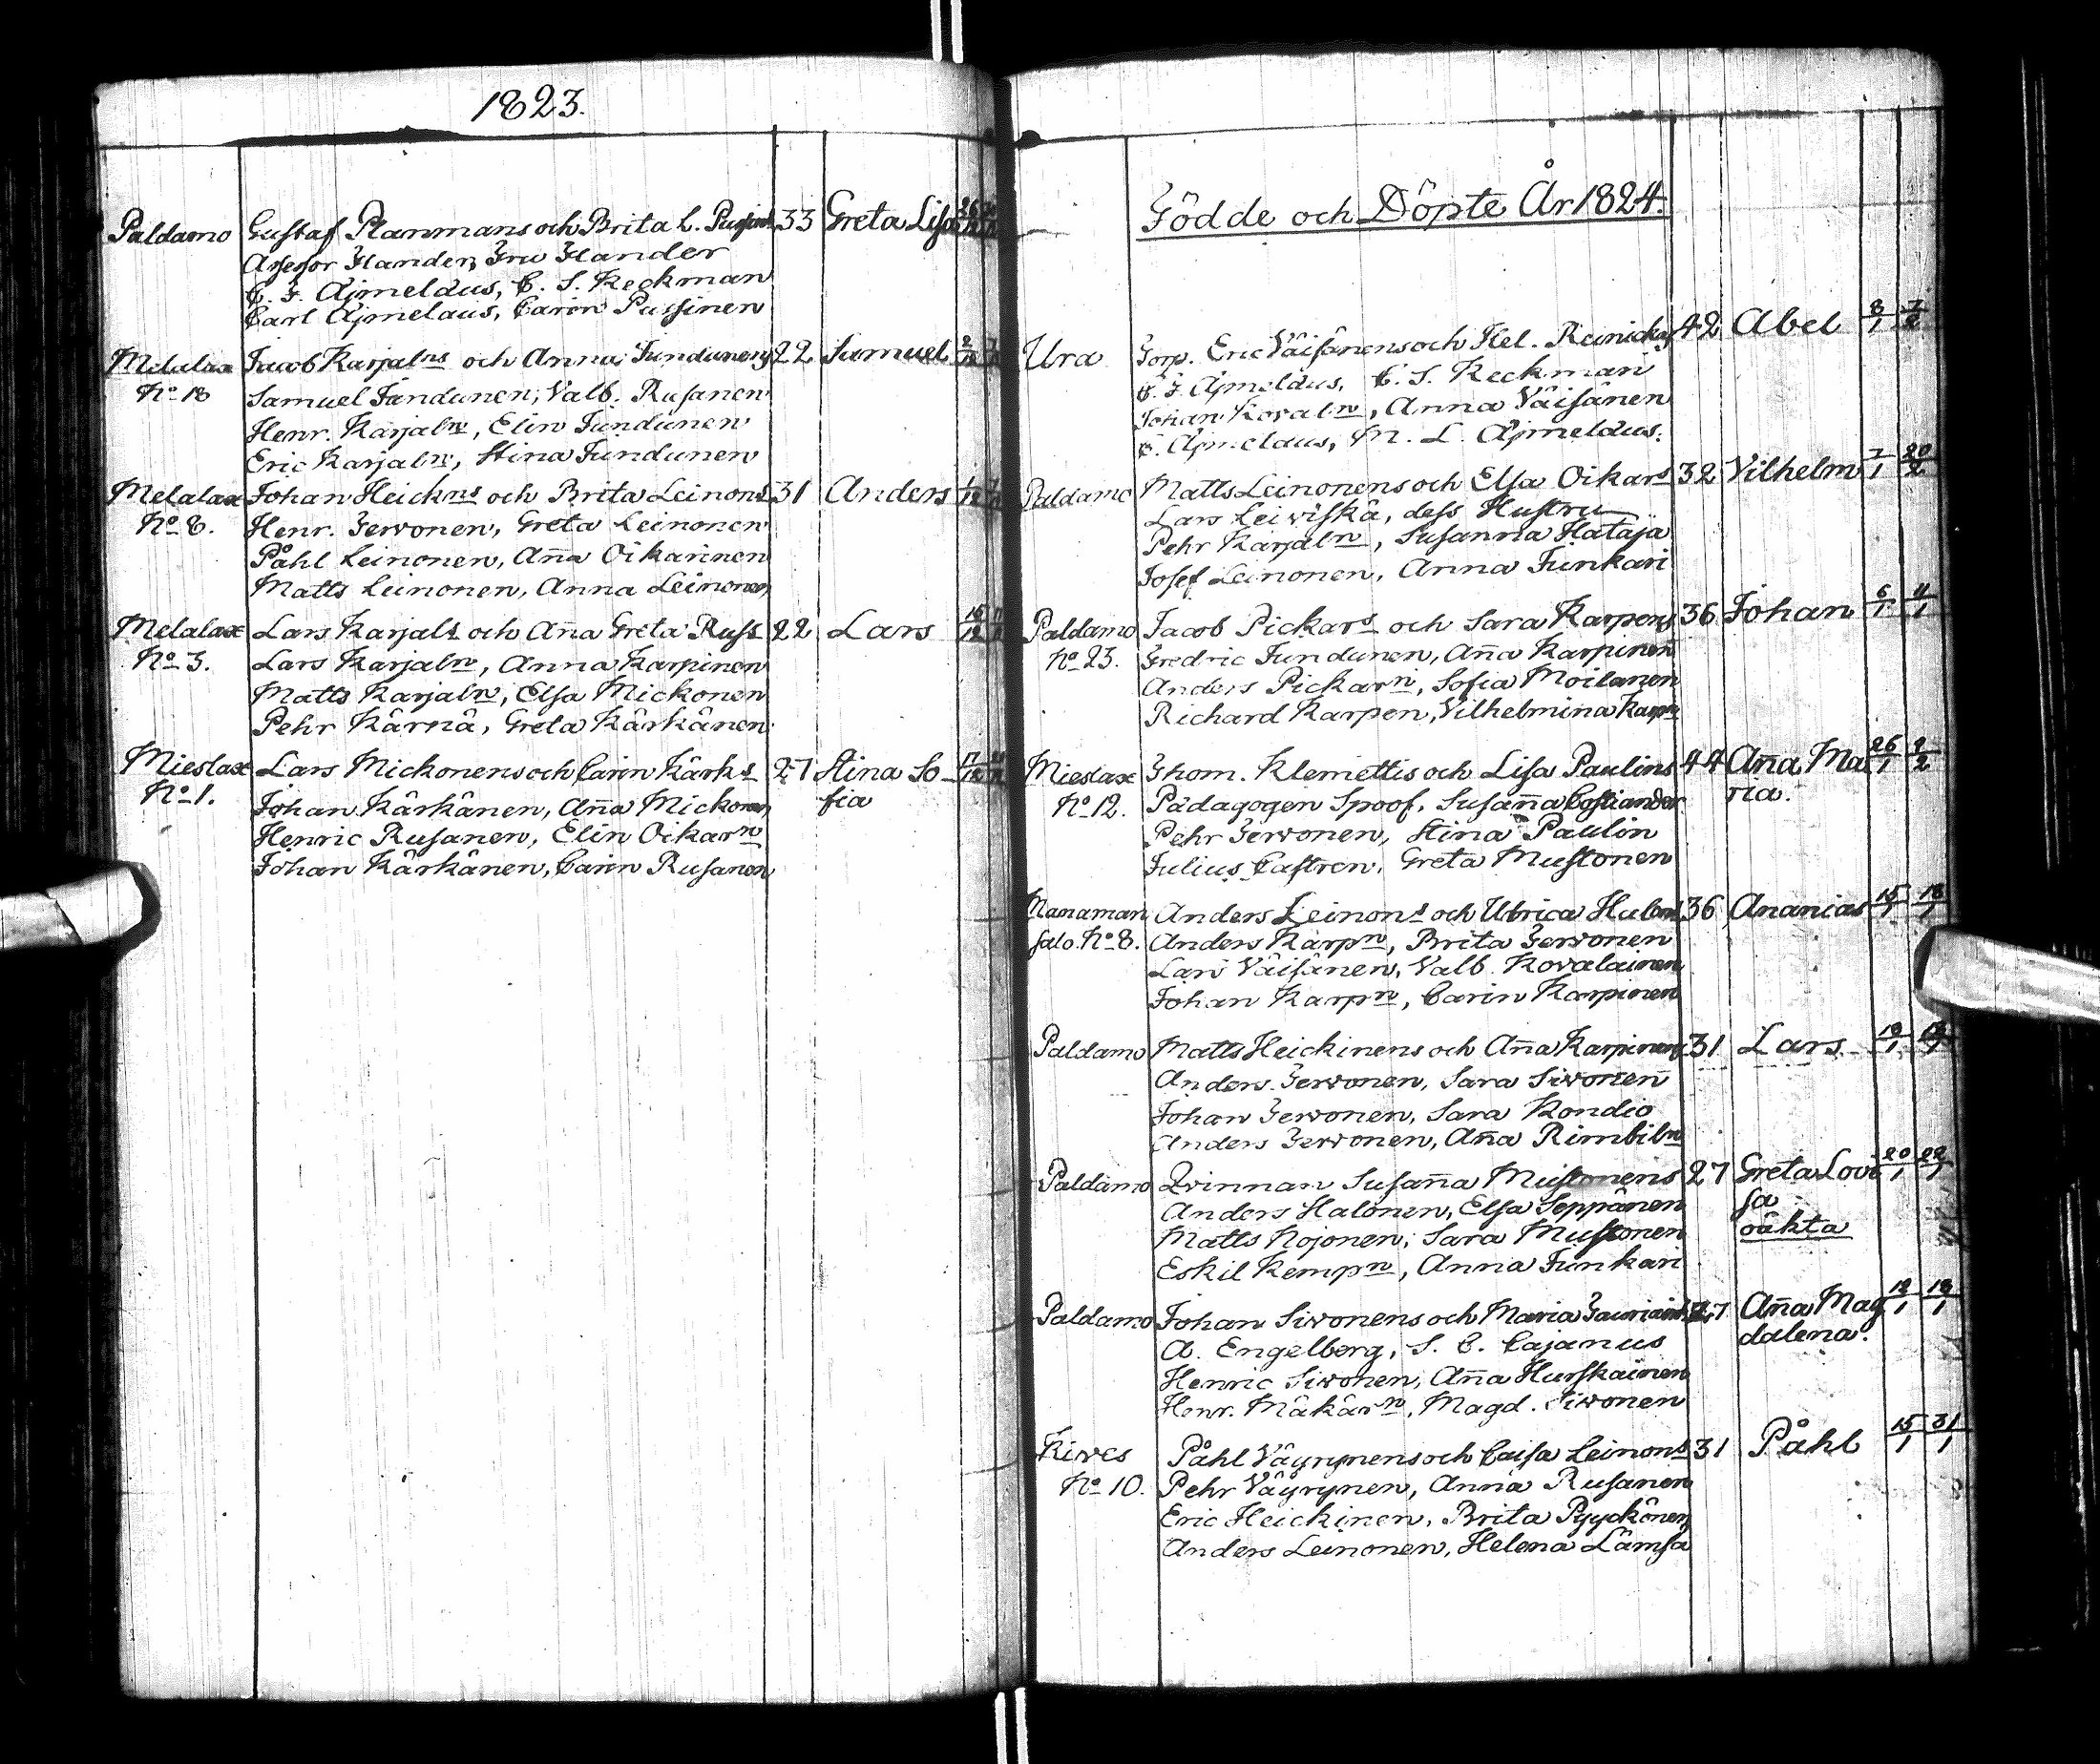 1823.
Paldamo Gustaf Planmans och Brita L. 33 Greta Lisa
Assessor Flander, Fru Flander
C. F. Ajmelæus, C. S. Keckman
Carl Ajmelaus, Carin Pussinen
Melalax Jacob Karjalns och Anna Jundunens 22 Samuel
No 18 Samuel Jundunen, Valb. Rusanen
Henr. Karjaln, Elin Jundunen
Eric Karjaln, Stina Jundunen
Melalax Johan Heickns och Brita Leinons 31 Anders
No 8. Henr. Jervonen, Greta Leinonen
Påhl Leinonen, Ana Oikarinen
Matts Leinonen, Anna Leinonen
Melalax Lars Karjals och Ana Greta Russ 22 Lars
No 3. Lars Karjaln, Anna Karpinen
Matts Karjaln, Elsa Mickonen
Pehr Kärnä, Greta Kärkänen
Mieslax Lars Mickonens och Carin Kärks 27 Stina So
No 1. Johan Kärkänen, Ana Mickonen fia
Henric Rusanen, Elin Oikarn
Johan Kärkänen, Carin Rusanen
Födde och Döpte År 1824.
Ura Eric Väisänens och Hel. 42 Abel 8/1 7/2
C. F. Ajmelæus, C. S. Keckman
Johan Kovaln, Anna Väisänen
C. Ajmelaus, M. L. Ajmelæus.
Paldamo Matts Leinonens och Elsa Oikars 32 Vilhelm 7/1 20/2
Lars Leiviskä, dess Hustru
Pehr Karjaln, Susanna Hataja
Josef Leinonen, Anna Junkari
Paldamo Jacob Pickars och Sara Karpens 36 Johan 6/1 11/1
No 23. Fredric Jundunen, Ana Karpinen
Anders Pickarn, Sofia Moilanen
Richard Karpen, Vilhelmina Karpn
Mieslax Thom. Klemettis och Lisa Paulins 44 Ana Ma 26/1 2/2
No 12. Pädagogen Spoof, Susana Costiander ria.
Pehr Jervonen, Stina Paulin
Julius Castren, Greta Mustonen
Manaman Anders Leinons och Ulrica 36 Ananias 15/1 18/1
salo. No 8. Anders Karpn, Brita Jervonen
Lars Väisänen, Valb. Kovalainen
Johan Karpn, Carin Karpinen
Paldamo Matts Heickinens och Ana Karpinens 31 Lars
Anders Jervonen, Sara Sivonen
Johan Jervonen, Sara Kondio
Anders Jervonen, Ana Rimbiln
Paldamo Qvinnan Susana Mustonens 27 Greta Lovi 20/1 22/1
Anders Halonen, Elsa Seppänen sa
Matts Kojonen, Sara Mustonen oäkta
Eskil Kempn, Anna Junkari
Paldamo Johan Sivonens och Maria 27 Ana Mag
A. Engelberg, S. C. Cajanus dalena.
Henric Sivonen, Ana Hurskainen
Henr. Mäkärn, Magd. Sivonen
Kives Påhl Väyrynens och Caisa Leinons 31 Påhl 15/1 31/1
No 10. Pehr Väyrynen, Anna Rusanen
Eric Heickinen, Brita Pyyckönen
Anders Leinonen, Helena Lämsä